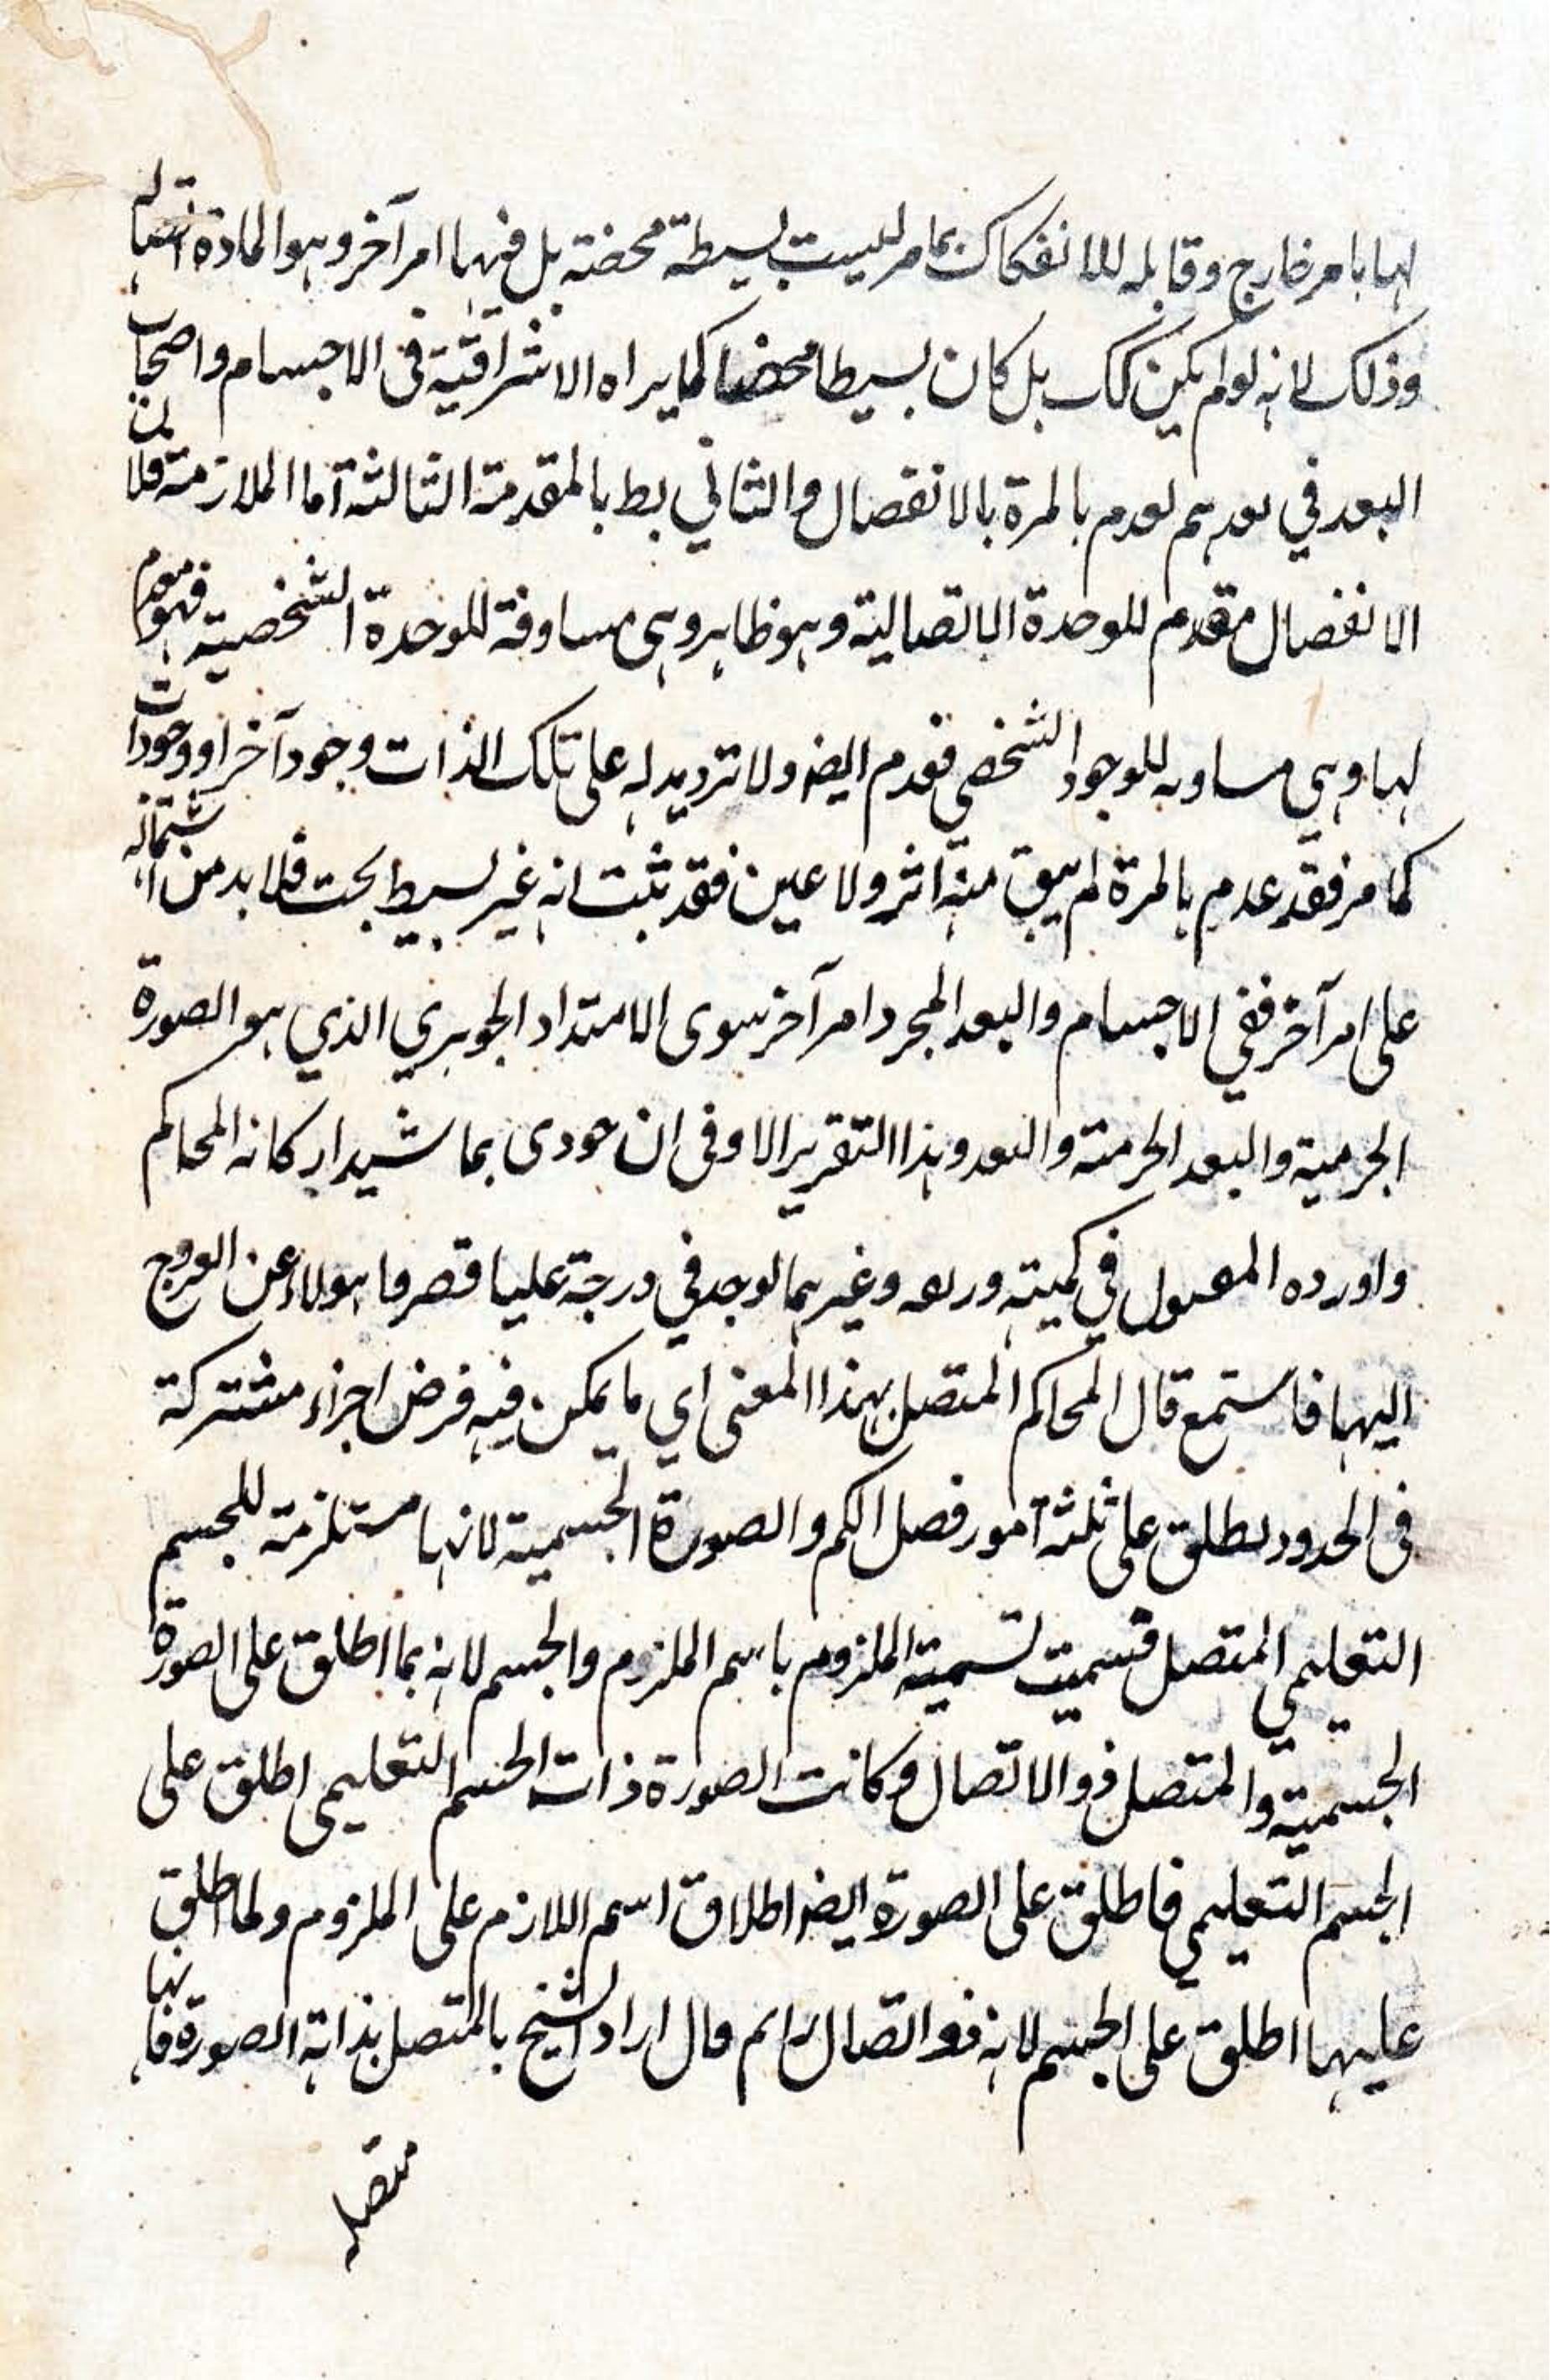 لها بامر خارج وقابله للانفكاك بمامر ليست بسيطة محضة بل فيها امر آخر وهو المادة
وذلك لانه لو لم يكن كك بل كان بسيطا محضا كما يراه الاشراقية في الاجسام واصحاب
البعد في بعدهم لعدم بالمرة بالانفصال والثاني بط بالمقدمة الثالثة اما الملازمة فلان
الانفصال مقدم للوحدة الاتصالية وهو ظاهر وهى مساوقة للوحدة الشخصية فهو معدم
لها وهى للوجود الشخصي فعدم ايضا ولا تزد يد له على تلك الذات وجود آخر او وجودات
كما مر فقد عدم بالمرة لم يبق منه اثر ولا عين فقد ثبت انه غير بسيط بحت فلا بد من اشتماله
على امر آخر ففي الاجسام والبعد المجرد امر آخر سوى الامتداد الجوهري الذي هو الصورة
الجرمية والبعد وهذا التقرير الاوفى ان حودى بما شيد اركانه المحاكم
واورده في كميته وغيرهما لوجد في درجة عليا قصر ما هولاء عن العروج
اليها فاستمع قال المحاكم المتصل بهذا المعنى اي ما يمكن فيه فرض اجزاء مشتركة
في الحدود يطلق على ثلثة امور فصل الكم والصورة الجسمية لانها مستلزمة للجسم
التعليمي المتصل فسميت تسمية الملزوم باسم الملزوم والجسم لانه بما اطلق على الصورة
الجسمية والمتصل ذو الاتصال وكانت الصورة ذات الجسم التعليمي اطلق على
الجسم التعليمي فاطلق على الصورة ايضا اطلاق اسم اللازم على الملزوم ولما اطلق
عليها اطلق على الجسم لانه ذو اتصال قال اراد الشيخ بالمتصل بذاته الصورة فانها
متصله